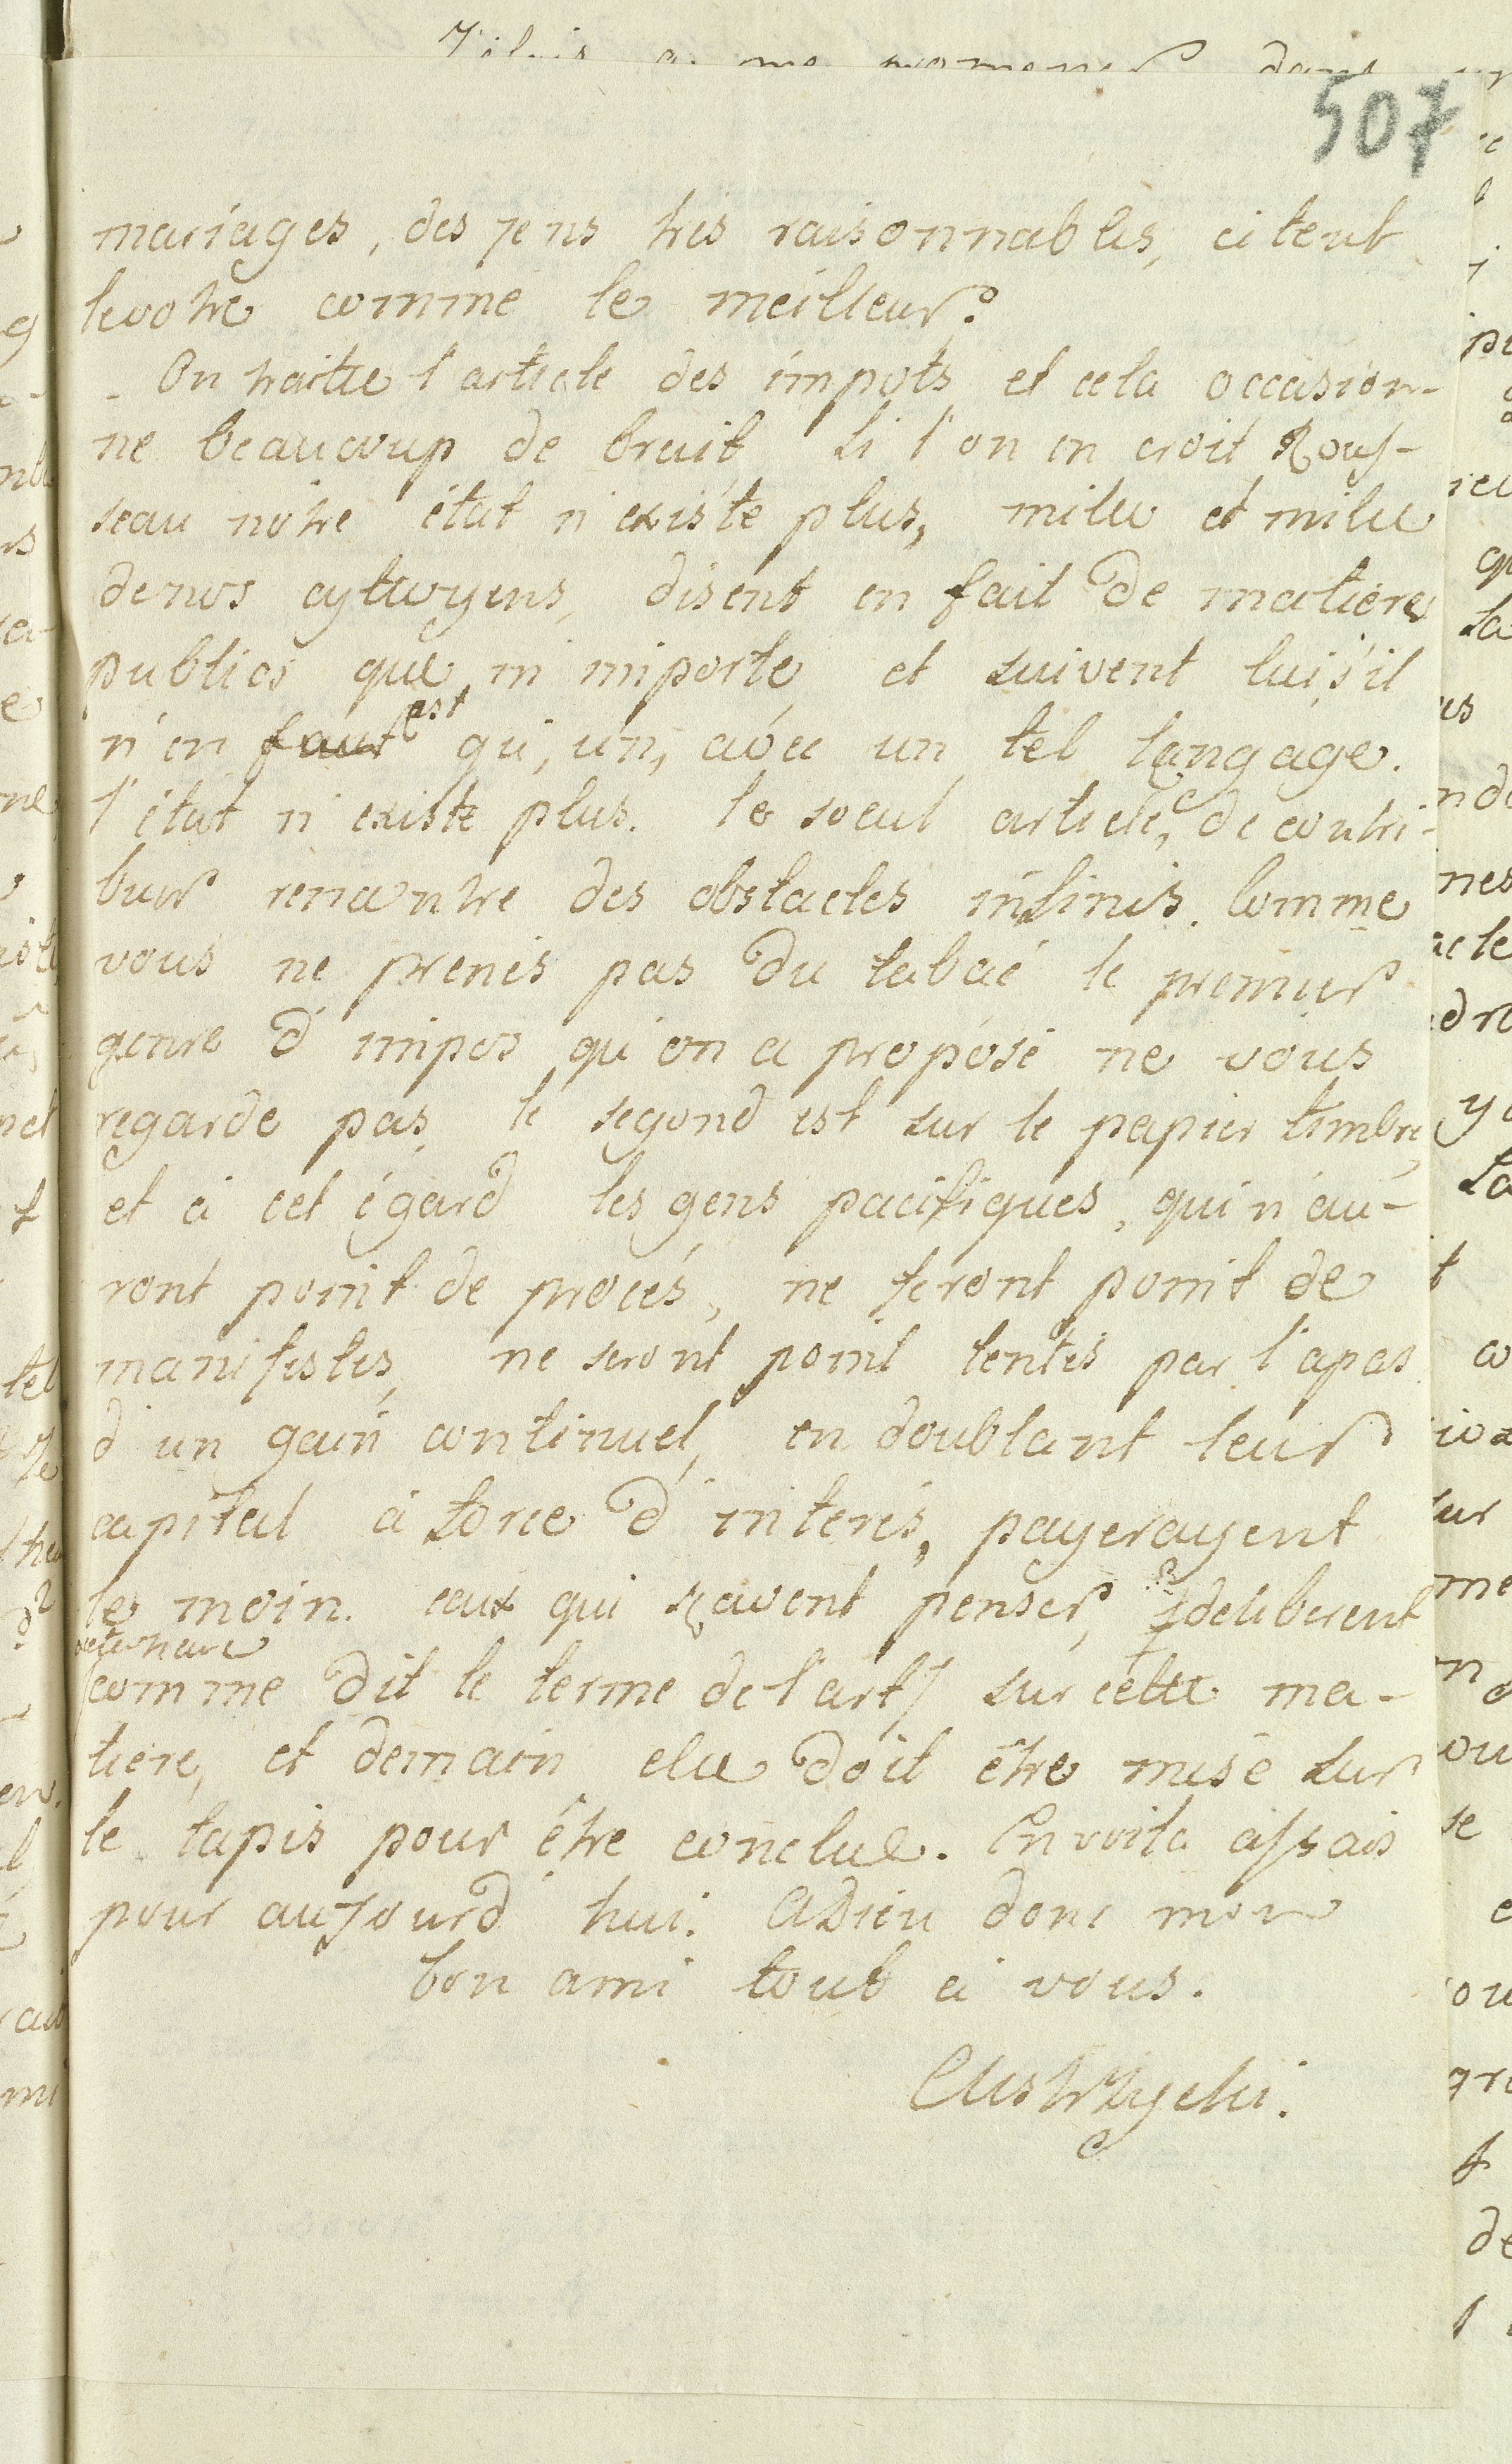 507
mariages, des jens tres raisonnables, citent
levotre comme le meilleur.
- On traitte l'article des impots et cela occasion-
ne beaucoup de bruit. Si l'on en croit Rous-
seau nôtre état n'existe plus, mille et mille
denos cytoyens, disent en fait de matiere
publics que m'importe, et suivent lui, s'il
n'en faut est qu'un, avec un tel langage.
l'état n'existe plus. le soeul article, de contri-
buer rencontre des obstacles infinis. Comme
vous ne prenés pas du tabac le premier
genre d'impos qu'on a proposé ne vous
regarde pas, le segond est sur le papier timbré
et à cet égard les gens pacifiques, qui n'au-
ront point de procés, ne feront point de
manifestes, ne seront point tentés par l'apas
d'un gain continuel, en doublant leur
capital à force d'interés, payerayent
le moin. ceux qui sçavent penser, deliberent
comme dit le terme de l'art) sur cette ma-
tiere, et demain elle doit être mise sur
le tapis pour être conclue. En voila assais
pour aujourd'hui. Adieu donc mon
bon ami tout à vous.